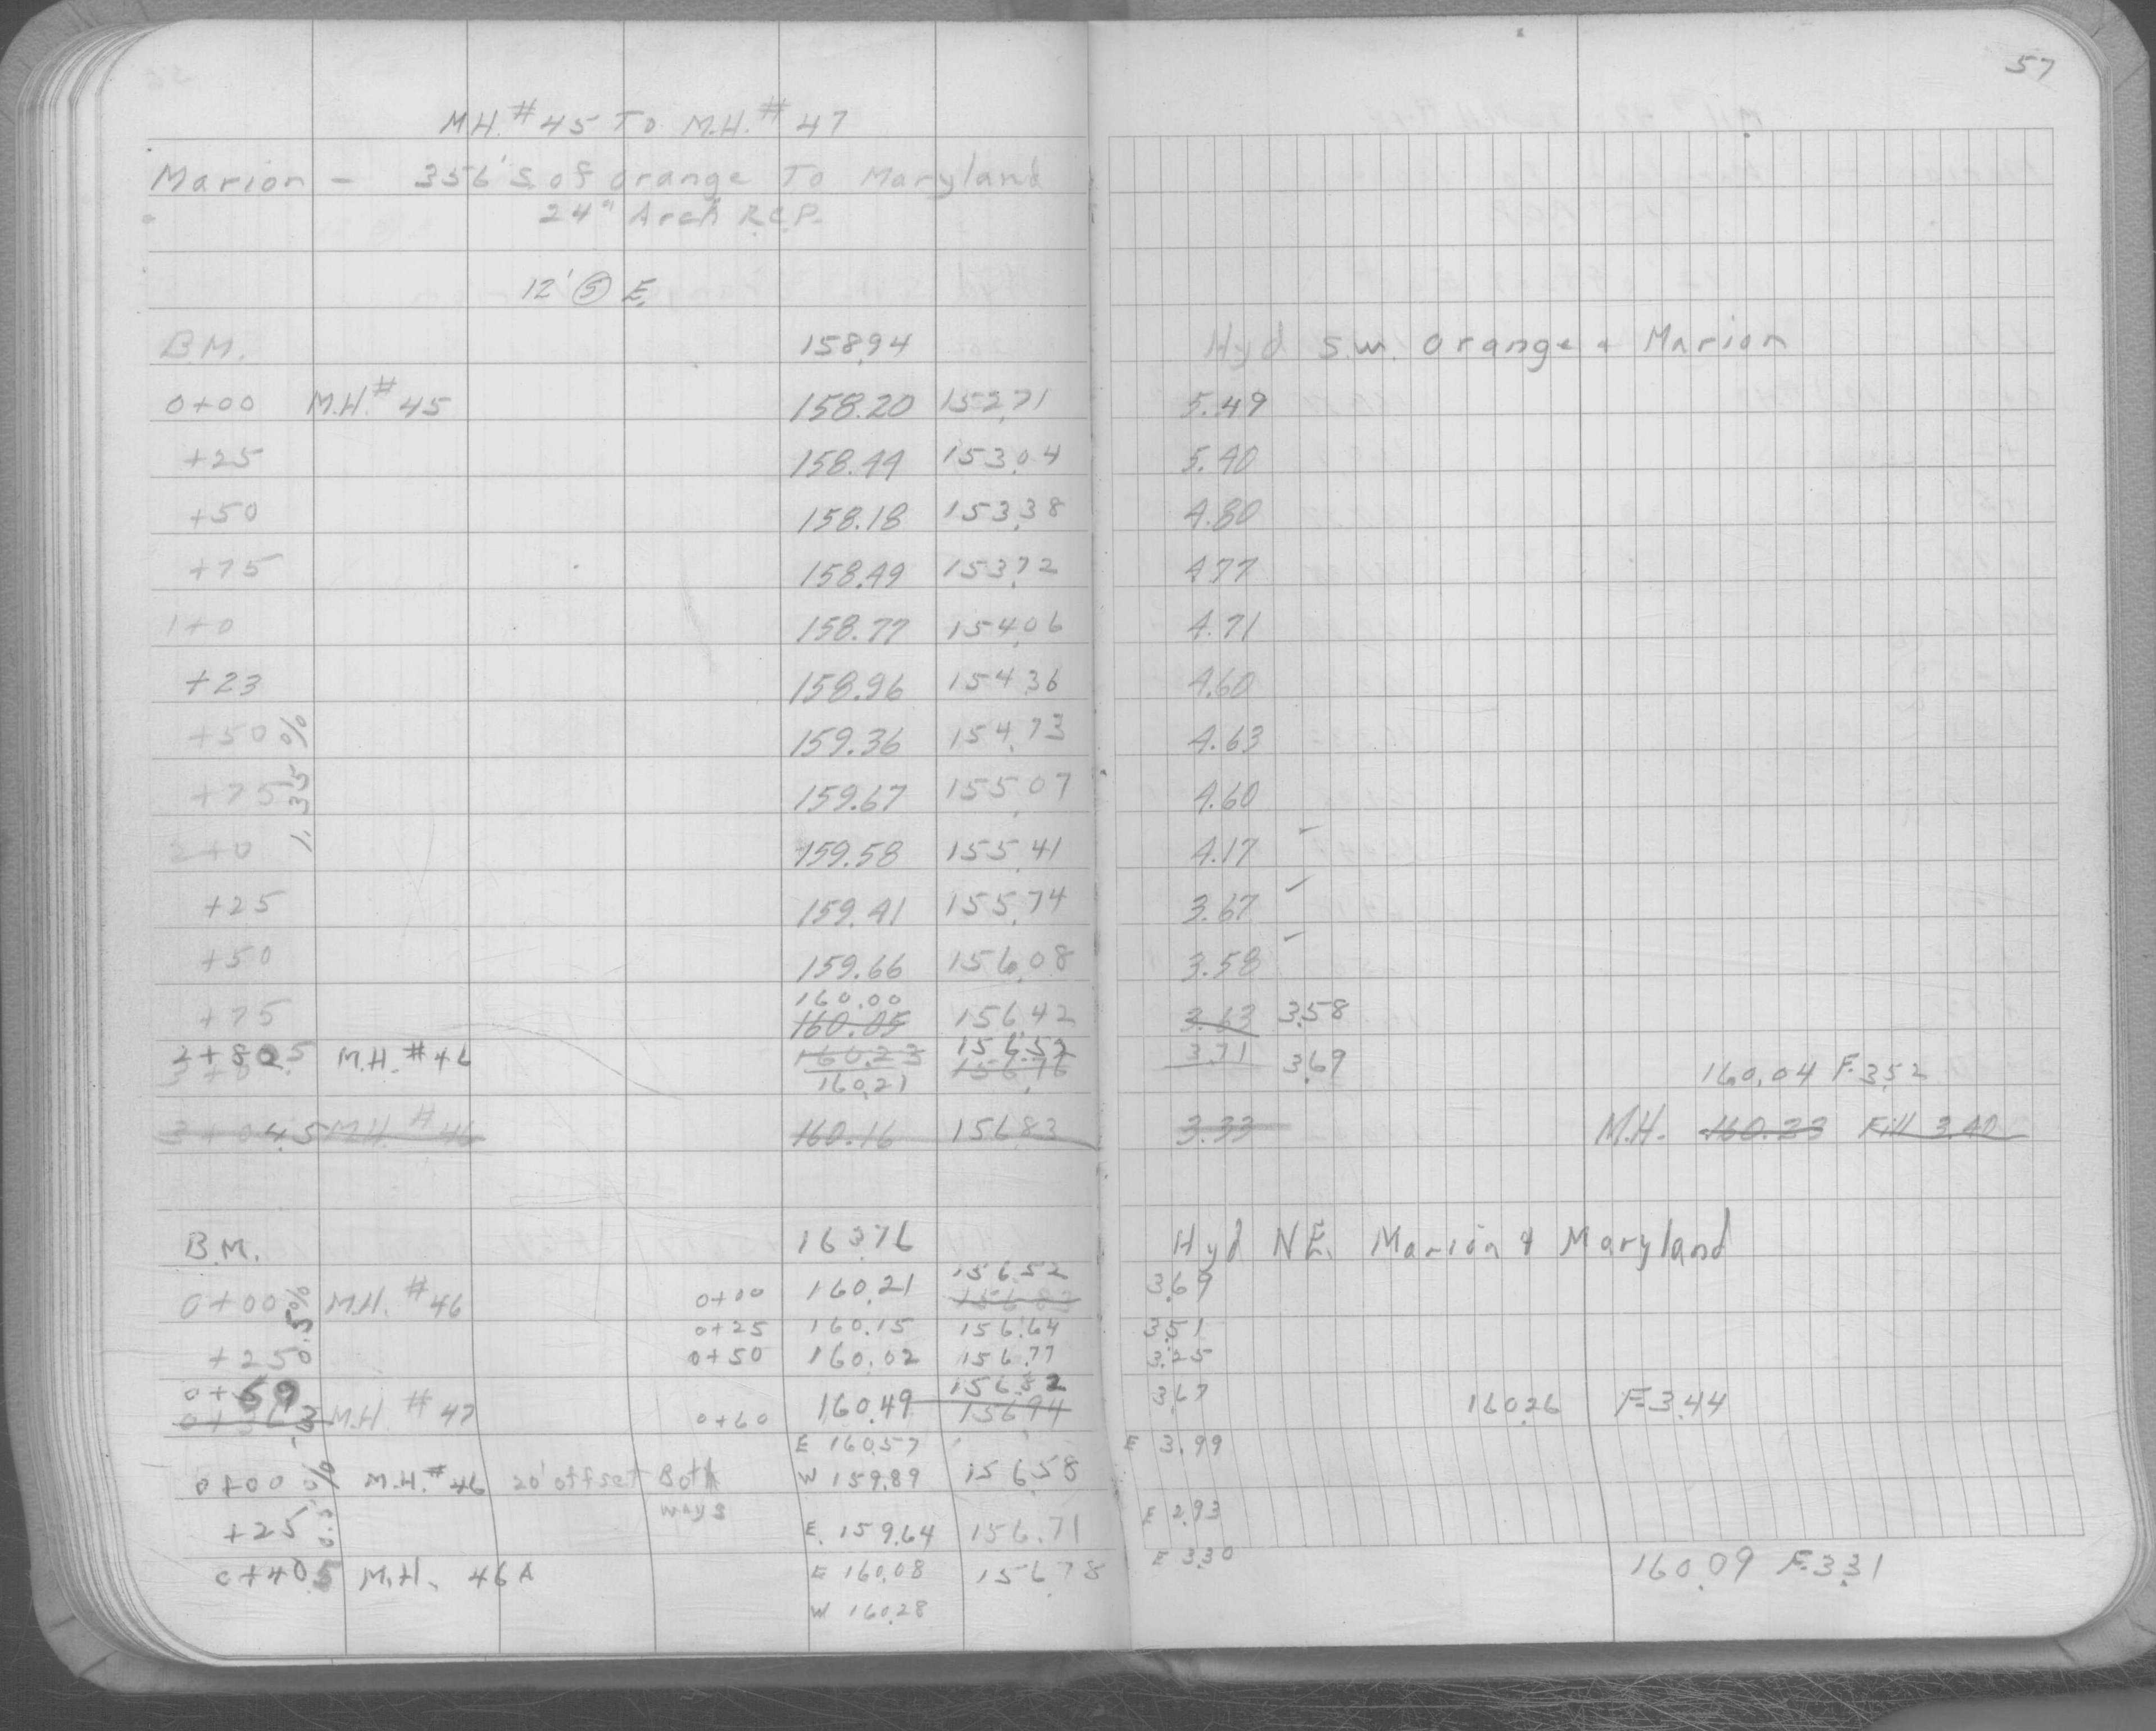 57
M.H. # 45 To M.H. # 47
Marion - 356' S. of Orange To Maryland
24" Arch R.C.P.
12' Ⓢ E.
B.M. 158.94 Hyd S.W. Orange & Marion
0+00 M.H. # 45 158.20 152.71 5.49
+25 158.44 153.04 5.40
+50 158.18 153.38 4.80
+75 158.49 153.72 4.77
1+0 158.77 154.06 4.71
+23 158.96 154.36 4.60
+50 159.36 154.73 4.63
+75 159.67 155.07 4.60
1.35%
2+0 159.58 155.41 4.17 ✓
+25 159.41 155.74 3.67 ✓
+50 159.66 156.08 3.58 ✓
160.00
+75 160.05 156.42 3.63 3.58
2+82.5 M.H. # 46 160.23 156.52 3.71 3.69
160.21 156.76 160.04 F. 3.52
3+04.5 M.H. # 46 160.16 156.83 3.33 M.H. 160.23 Fill 3.40
B.M. 163.76 Hyd N.E. Marion & Maryland
156.52 3.69
0+00 M.H. # 46 0+00 160.21 156.83
0.5%
0+25 160.15 156.64 3.51
+25 0+50 160.02 156.77 3.25
0+69 156.82 3.67
M.H. # 47 0+60 160.49 156.94 160.26 F. 3.44
E 160.57 E 3.99
0+00 M.H. # 46 20' offset Both ways W 159.89 156.58
0.5%
+25 E. 159.64 156.71 E 2.93
0+40.5 M.H. 46A E 160.08 156.78 E 3.30 160.09 F. 3.31
W 160.28